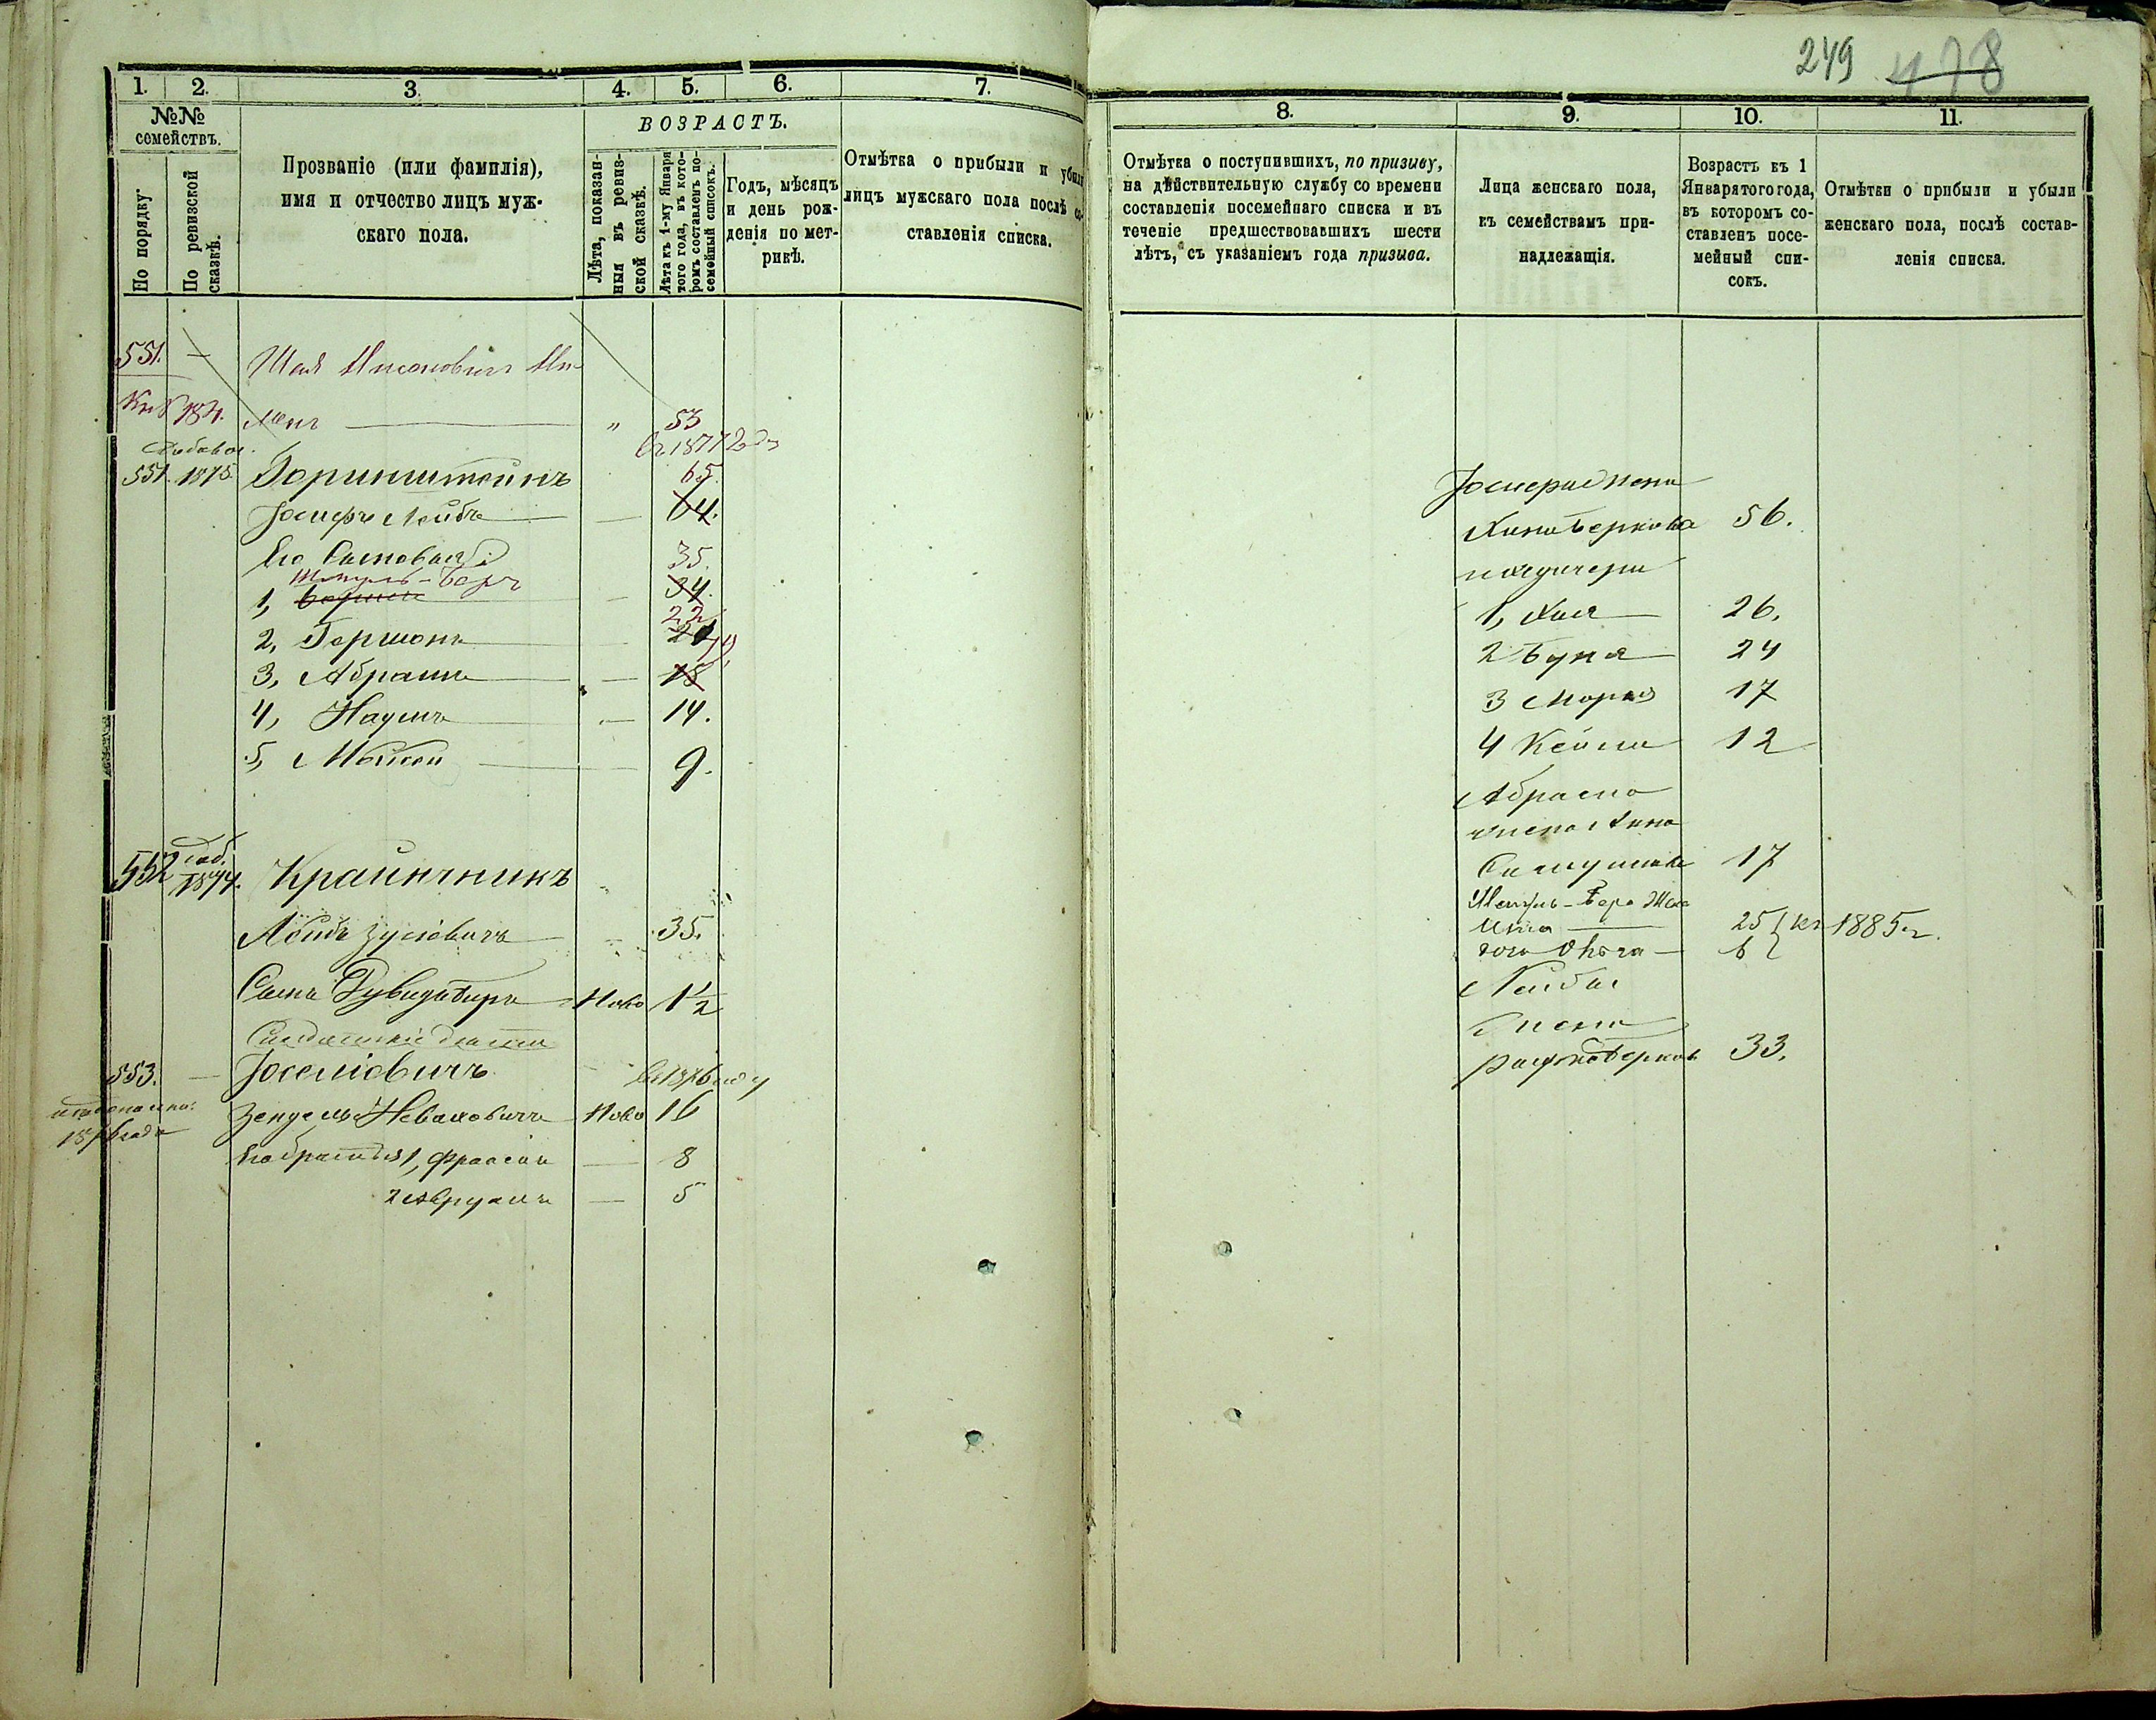 249 478
1. 2. 3. 4. 5. 6. 7.
№№ семействъ.
По порядку.
По ревизской сказкѣ.
Прозваніе (или фамилія),
имя и отчество лицъ муж-
скаго пола.
ВОЗРАСТЪ.
Лѣта, показан-
ныя въ ревиз-
ской сказкѣ.
Лѣта къ 1-му Января
того года, въ кото-
ромъ составленъ по-
семейный списокъ.
Годъ, мѣсяцъ
и день рож-
денія по мет-
рикѣ.
Отмѣтка о прибыли и убыли
лицъ мужскаго пола послѣ со-
ставленія списка.
551. — Шая
184. 53
въ 1877 году
551. 1875 Горинштейнъ 65.
Іосифъ Лейбъ — 64.
Его Сыновья 35.
1, Беръ 34.
22
2, Гершонъ — 21
19
3, Абрамъ — 18
4, Наумъ — 14.
5, Мойсей — 9.
552 1874. Крайнчикъ
Лейбъ Зусіовичъ — 35.
Сынъ Дувидъ Беръ Ново 1½
553. — Іоселіовичъ въ 1876 году
1876 года
Зендель Неваховичъ Ново 16
Его братья 1, Фроимъ — 8
2 Аврумъ — 5
8. 9. 10. 11.
Отмѣтка о поступившихъ, по призыву,
на дѣйствительную службу со времени
составленія посемейнаго списка и въ
теченіе предшествовавшихъ шести
лѣтъ, съ указаніемъ года призыва.
Лица женскаго пола,
къ семействамъ при-
надлежащія.
Возрастъ къ 1
Января того года,
въ которомъ со-
ставленъ посе-
мейный спи-
сокъ.
Отмѣтки о прибыли и убыли
женскаго пола, послѣ состав-
ленія списка.
Іосифа жена
Хана Беркова 56.
и дочери
1, Хая 26.
2 Буня 24
3 17
4 Кейла 12
Абрама
жена Хана
17
Беръ Жена
25 къ 1885 г.
дочь 6
Лейба
жена
Беркова 33.